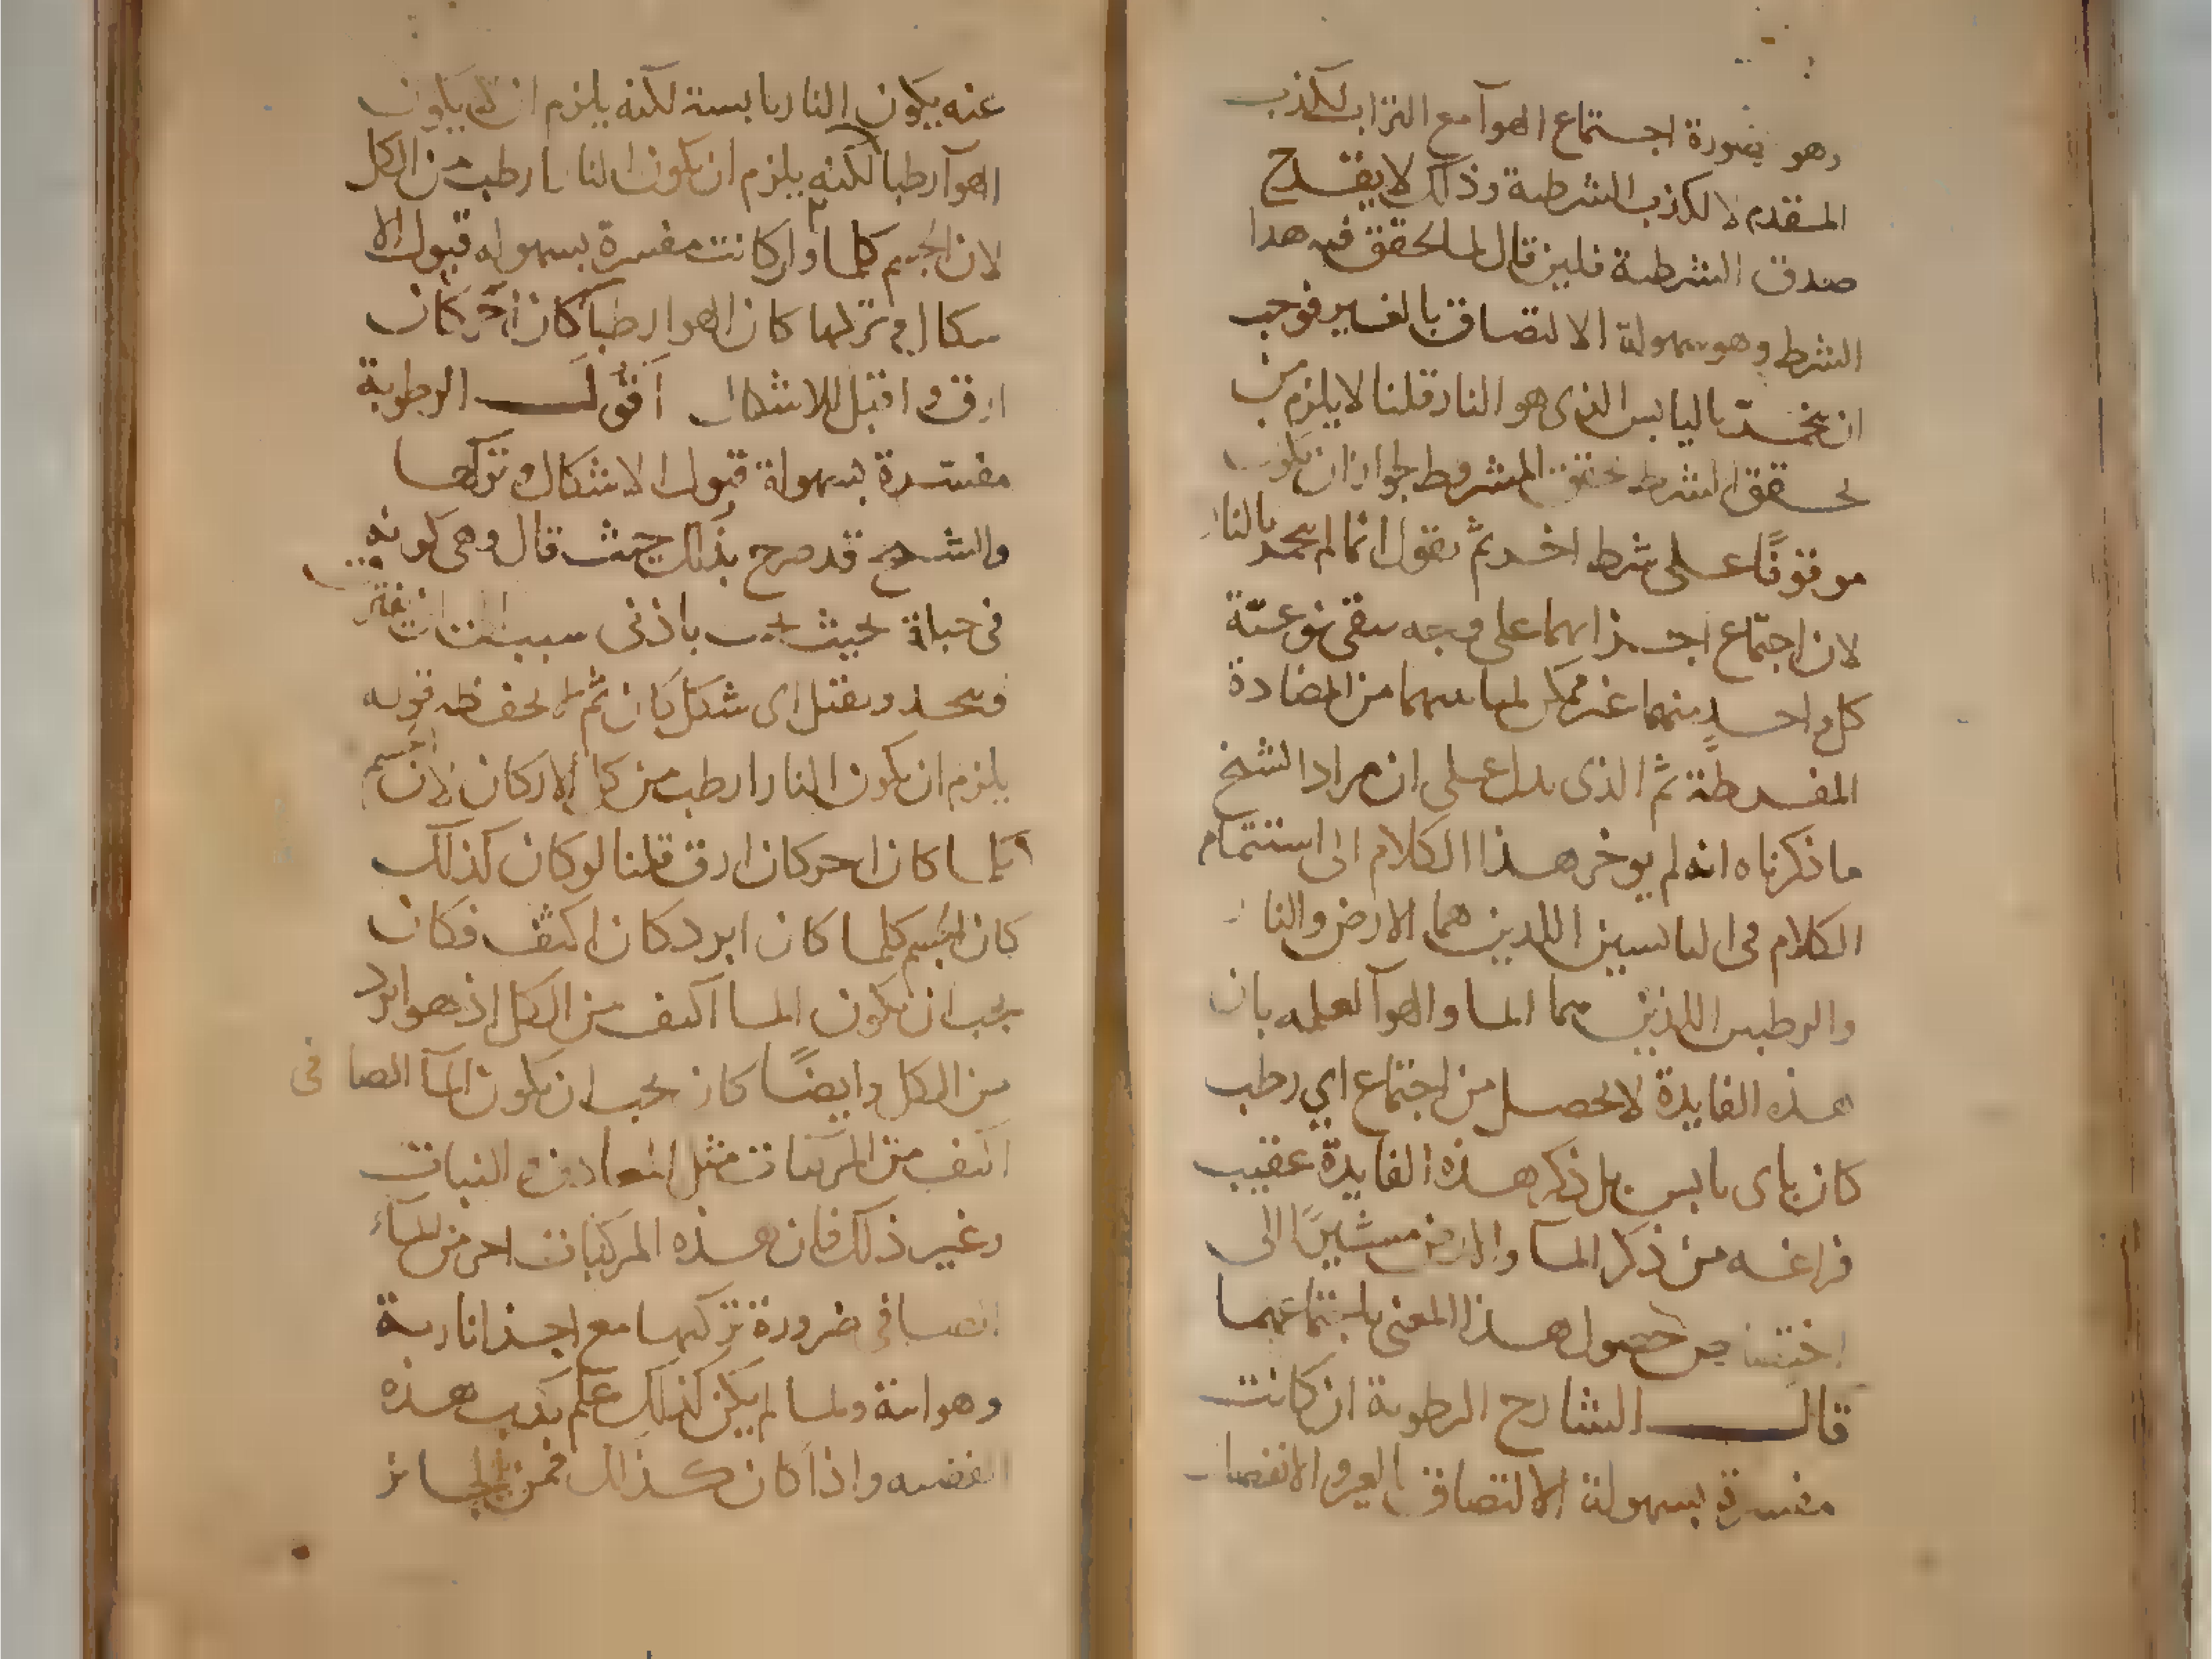 وهو بصورة اجتماع الهوآ مع التراب لكذب
المقدم لا لكذب الشرطية وذلك لا يقدح
صدق الشرطية فلين قال لما تحقق فيه هدا
الشرط وهو سهولة الالتصاق بالغير فوجب
ان يتحمد باليابس الذى هو النار قلنا لا يلزم من
تحقق الشرط تحقق المشروط لجواز ان يكون
موقوفًا على شرط اخر ثم نقول انما لم يتحمد بالنار
لان اجتماع اجزايهما على وجه يبقى نوعيّة
كل واحد منهما غير ممكن لما بينهما من المضادة
المفرطة ثم الذى يدل على ان مراد الشيخ
ما ذكرناه انه لم يوخر هذا الكلام الى استتمام
الكلام فى اليابسين اللدين هما الارض والنار
والرطبين اللذين هما الما والهوآ لعلمه بان
هذه الفايدة لا تحصل من اجتماع اي رطب
كان باى يابس بل ذكر هذه الفايدة عقيب
فراغه من ذكر المآ والارض مشيرًا الى
حصول هذا المعنى باجتماعهما
قال الشارح الرطوبة ان كانت
مفسرة بسهولة الالتصاق بالغير والانفصال
عنه يكون النار يابسة لكنه يلزم ان لا يكون
الهوآ رطبا لكنه يلزم ان يكون النار ارطب من الكل
لان الجسم كلما وان كانت مفسرة بسهولة قبول الا
شكال وتركها كان الهوا رطبا كان احر كان
ارق واقبل للاشكال اقول الرطوبة
مفسرة بسهولة قبول الاشكال وتركها
والشيخ قد صرح بذلك حيث قال وهى كونه
فى حياة بحيث باذنى سبب ان
ويتحد ويقبل اى شكل كان ثم لا يحفظه قوله
يلزم ان يكون النار ارطب من كل الاركان لان الجسم
كلما كان احر كان ارق قلنا لو كان كذلك
كان الجسم كلما كان ابرد كان اكثف فكان
يجب ان يكون الما اكثف من الكل اذ هو ابرد
من الكل وايضًا كان يجب ان يكون المآ الصافى
اكثف من المركبات مثل المعادن والنبات
وغير ذلك فان هذه المركبات احر من المآء
الصافى ضرورة تركبها مع اجزا نارية
وهوائية ولما لم يكن كذلك علم كذب هذه
القضيه واذا كان كذلك فمن الجايز